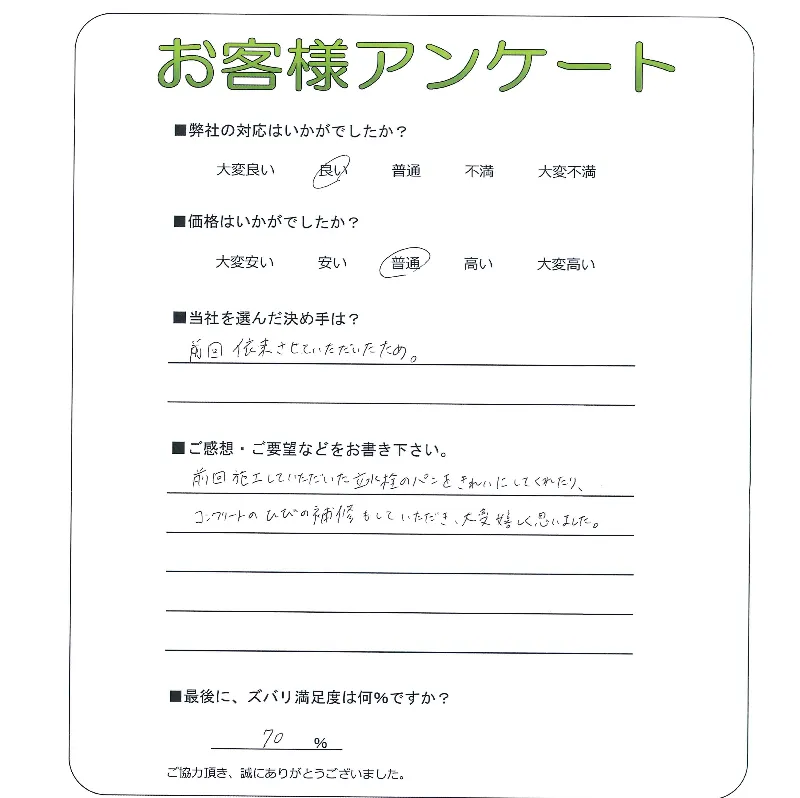 お客様アンケート
■弊社の対応はいかがでしたか？
大変良い 良い 普通 不満 大変不満
■価格はいかがでしたか？
大変安い 安い 普通 高い 大変高い
■当社を選んだ決め手は？
前回依来させていただいたため。
■ご感想・ご要望などをお書き下さい。
前回施工していただいた立水栓のパンをきれいにしてくれたり、
コンクリートのひびの補修もしていただき、大変嬉しく思いました。
■最後に、ズバリ満足度は何%ですか？
70 %
ご協力頂き、誠にありがとうございました。